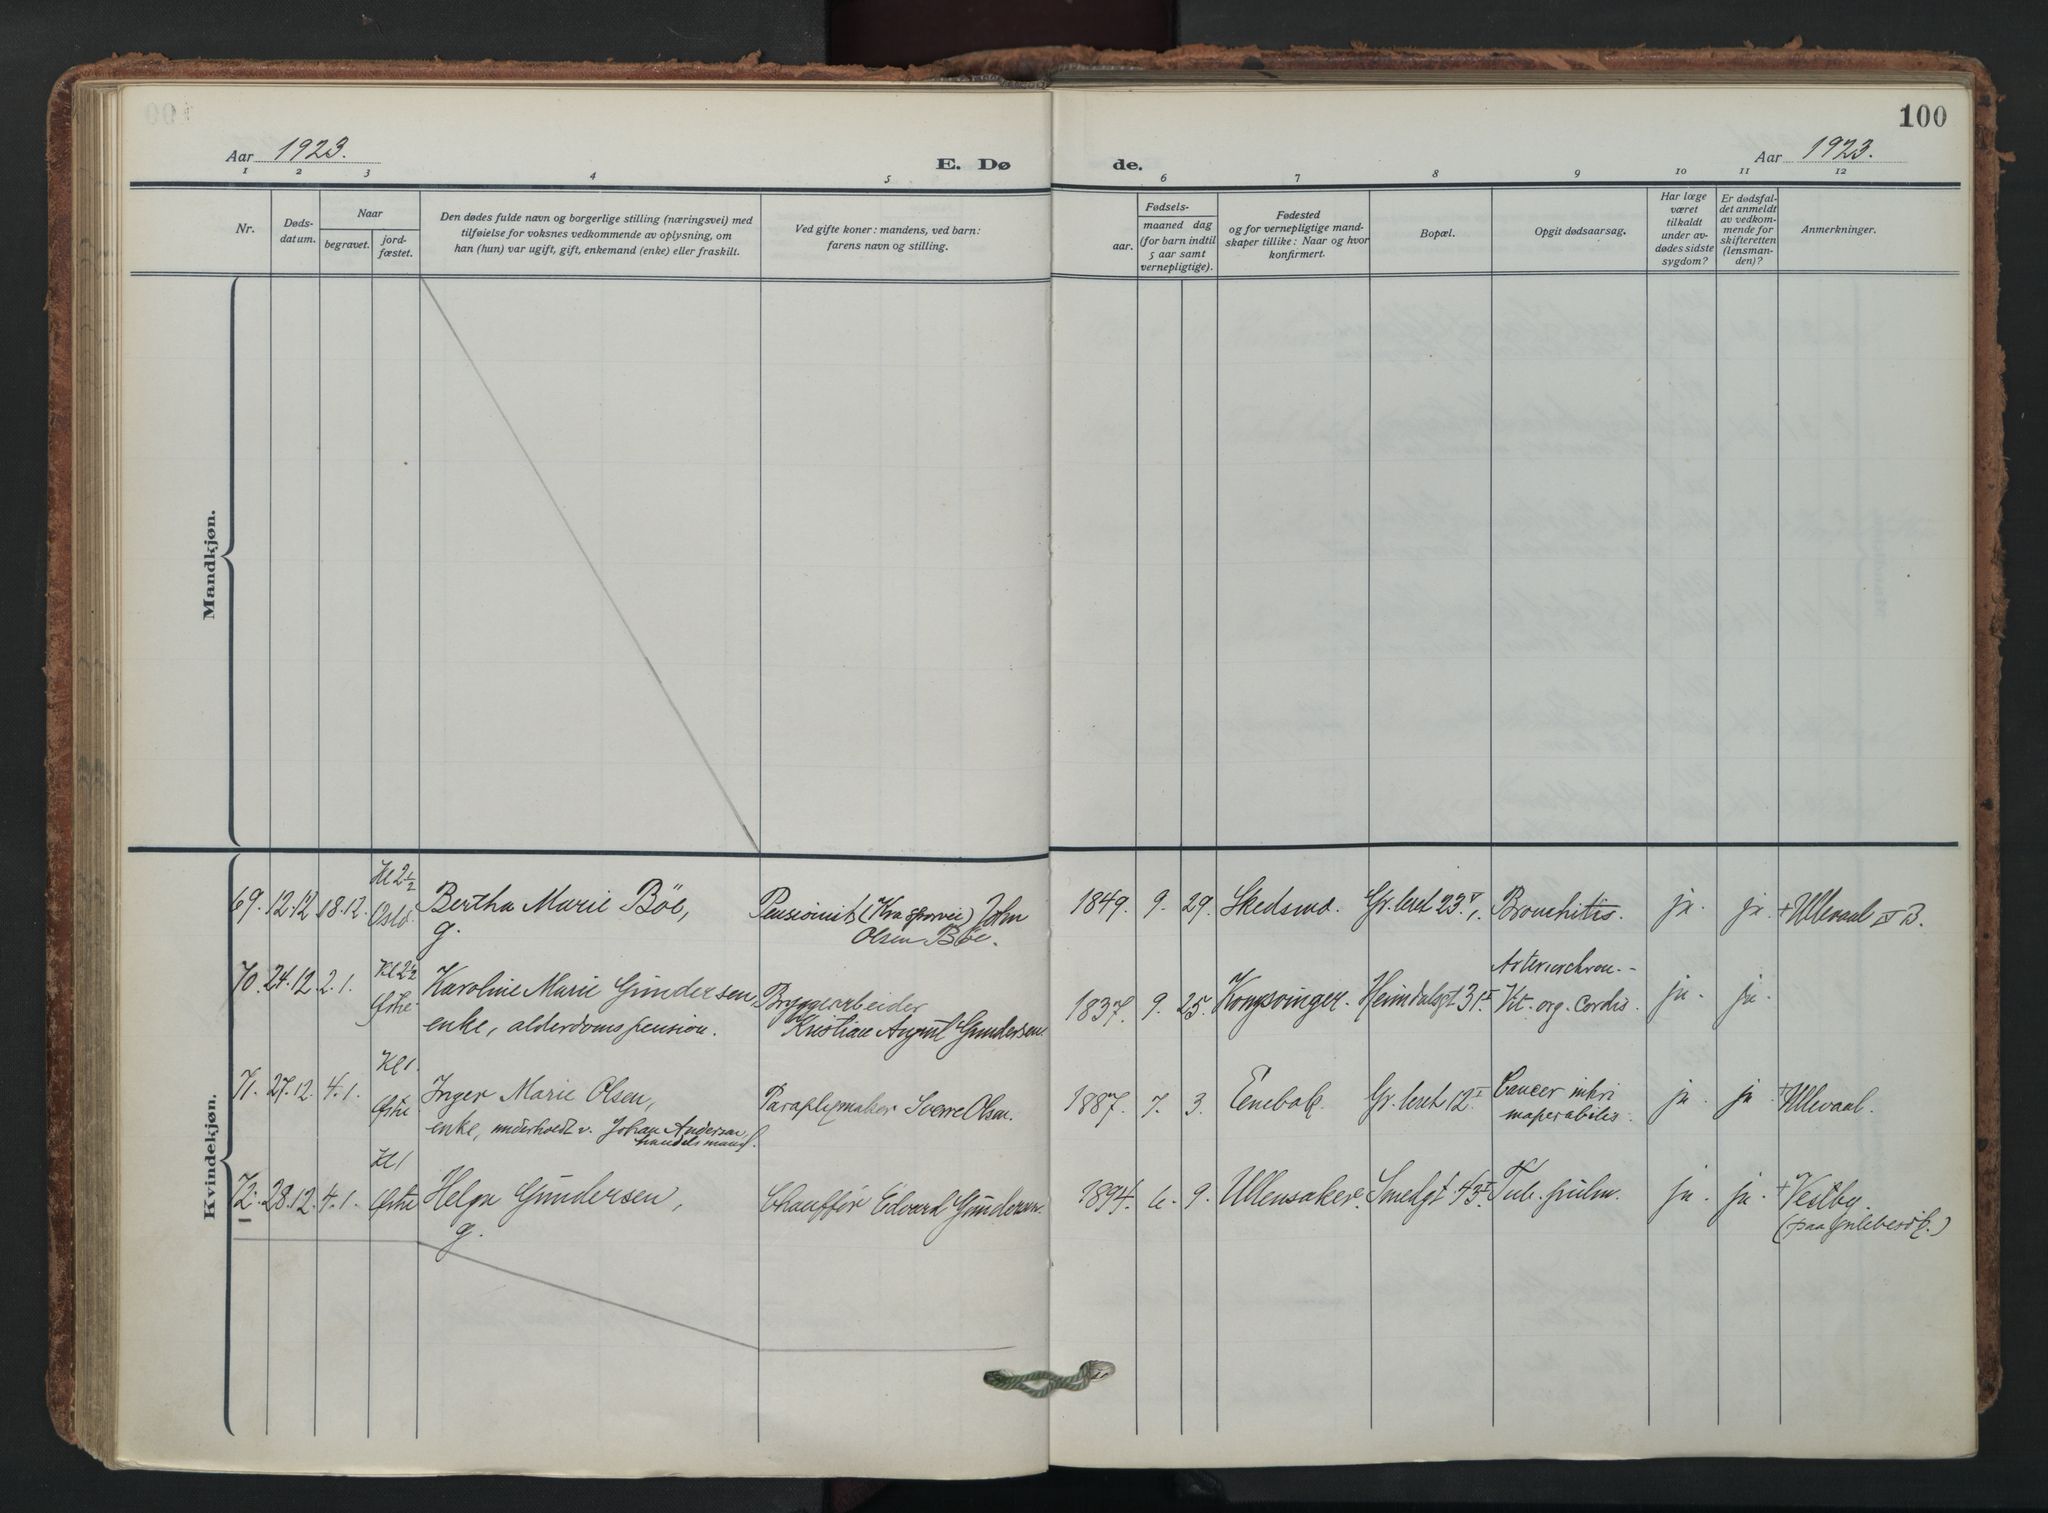 100
Aar 1923.
E. Dø
de.
Aar 1923.
1 2 3 4 5 6 7 8 9 10 11 12
Nr.
Døds-
datum.
Naar
begravet.
jord-
fæstet.
Den dødes fulde navn og borgerlige stilling (næringsvei) med
tilføielse for voksnes vedkommende av oplysning, om
han (hun) var ugift, gift, enkemand (enke) eller fraskilt.
Ved gifte koner: mandens, ved barn:
farens navn og stilling.
Fødsels-
aar.
maaned dag
(for barn indtil
5 aar samt
vernepligtige).
Fødested
og for vernepligtige mand-
skaper tillike: Naar og hvor
konfirmert.
Bopæl.
Opgit dødsaarsag.
Har læge
været
tilkaldt
under av-
dødes sidste
sygdom?
Er dødsfal-
det anmeldt
av vedkom-
mende for
skifteretten
(lensman-
den)?
Anmerkninger.
Mandkjøn.
Kvindekjøn.
Kl 2½
69. 12.12 18.12. Oslo. Bertha Marie Böe, Pensionist (Kra sporvei) John 1849. 9. 29. Skedsmo. Gr. leret 23 Bronchitis. ja. ja. + Ullevaal B.
g. Olsen Böe.
Kl 2½
70. 24.12. 2.1. Østre Karoline Marie Gundersen, Bryggearbeider 1837. 9. 25. Kongsvinger. Heimdalsgt 31 Vit. org. cordis ja. ja.
enke, alderdomspension. Kristian August Gundersen.
Kl 1.
71. 27.12. 4.1. Østre Inger Marie Olsen, Paraplymaker Sverre Olsen. 1887. 7. 3. Enebak. Gr. leret 12 Cancer ja. ja. + Ullevaal.
enke, underholdt v. Johan Andersen,
handelsmand.
Kl 1
72. 28.12. 4.1. Østre Helga Gundersen, Chauffør Edvard Gundersen. 1894. 6. 9. Ullensaker. Smedgt. 43 Tub. pulm. ja. ja. + Vestby.
g. (paa julebesøk.)